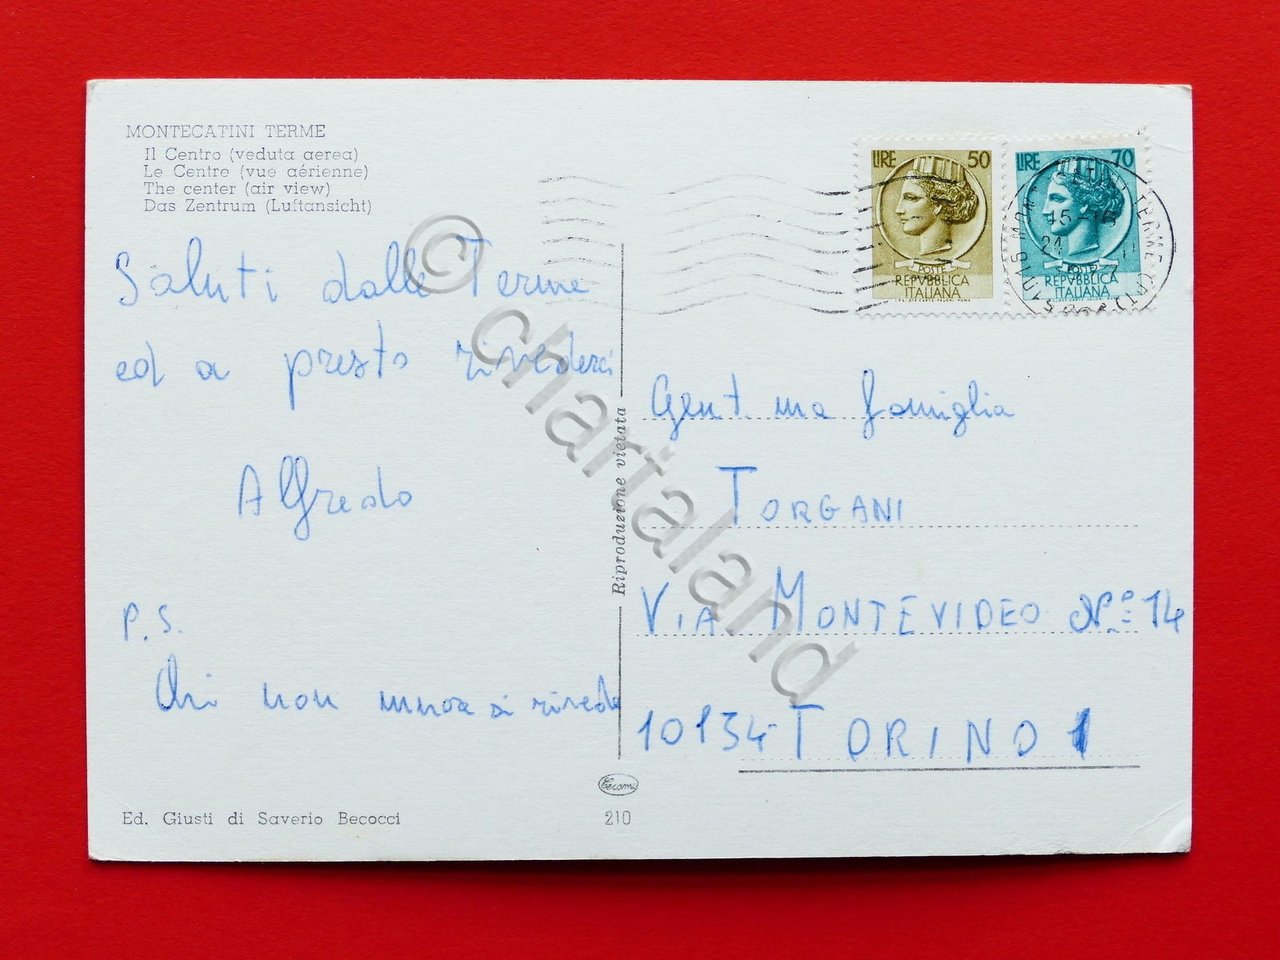 MONTECATINI TERME
Il Centro (veduta aerea)
Le Centre (vue aérienne)
The center (air view)
Das Zentrum (Luftansicht)
Saluti dalle Terme
ed a presto rivederci
Alfredo
P.S.
Chi non muore si rivede
Ed. Giusti di Saverio Becocci
210
Riproduzione vietata
LIRE 50
POSTE
REPVBBLICA
ITALIANA
LIRE 70
POSTE
REPVBBLICA
ITALIANA
15-16
24
Gent.ma famiglia
TORGANI
VIA MONTEVIDEO N.º 14
10134 TORINO
© chartaland